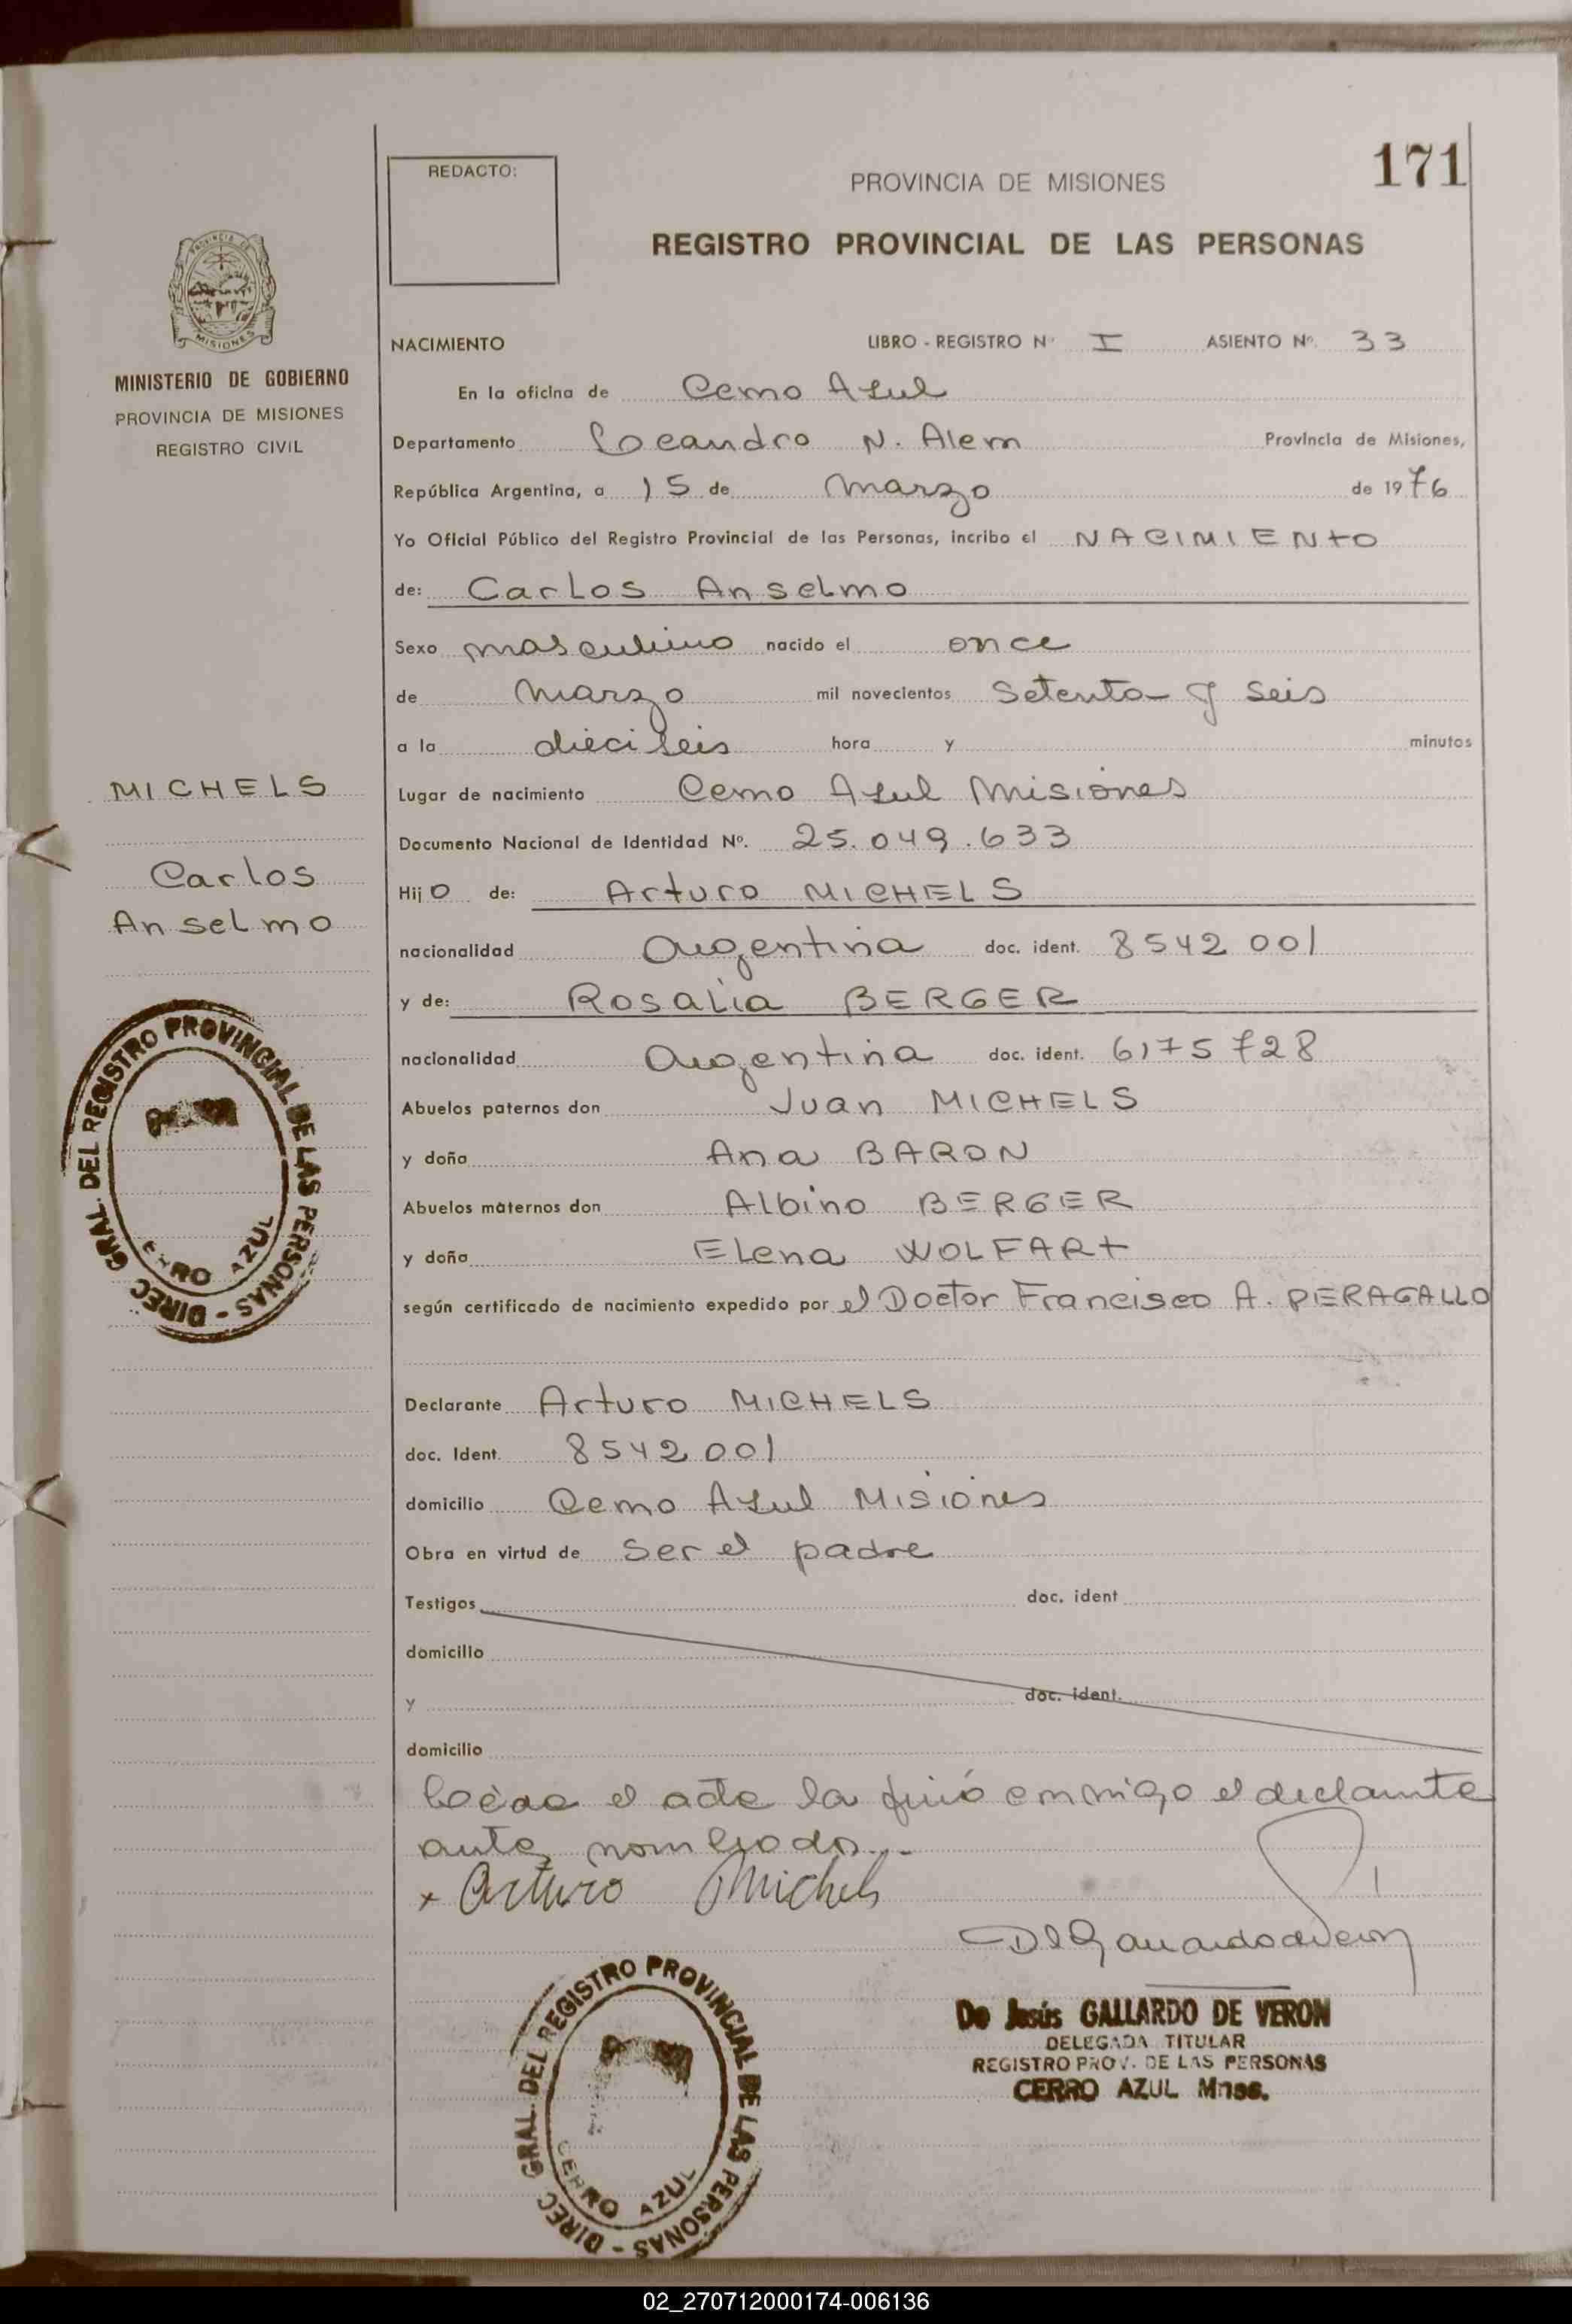 171
REDACTO:
PROVINCIA DE MISIONES
REGISTRO PROVINCIAL DE LAS PERSONAS
PROVINCIA DE
MISIONES
MINISTERIO DE GOBIERNO
PROVINCIA DE MISIONES
REGISTRO CIVIL
NACIMIENTO LIBRO - REGISTRO Nº I ASIENTO Nº 33
En la oficina de Cerro Azul
Departamento Leandro N. Alem Provincia de Misiones,
República Argentina, a 15 de Marzo de 1976
Yo Oficial Público del Registro Provincial de las Personas, incribo el NACIMIENTO
de: Carlos Anselmo
Sexo masculino nacido el once
de Marzo mil novecientos Setenta y Seis
a la dieciseis hora y minutos
Lugar de nacimiento Cerro Azul Misiones
Documento Nacional de Identidad Nº. 25.049.633
Hijo de: Arturo MICHELS
nacionalidad Argentina doc. ident. 8542001
y de: Rosalia BERGER
nacionalidad Argentina doc. ident. 6175728
Abuelos paternos don Juan MICHELS
y doña Ana BARON
Abuelos maternos don Albino BERGER
y doña Elena WOLFART
según certificado de nacimiento expedido por el Doctor Francisco A. PERAGALLO
Declarante Arturo MICHELS
doc. Ident. 8542001
domicilio Cerro Azul Misiones
Obra en virtud de Ser el padre
Testigos doc. ident
domicilio
y doc. ident.
domicilio
Leida el acta la firmó conmigo el declarante
antes nombrado.-
x Arturo Michels
MICHELS
Carlos
Anselmo
DIREC GRAL. DEL REGISTRO PROVINCIAL DE LAS PERSONAS -
CERRO AZUL
De Jesús GALLARDO DE VERON
DELEGADA TITULAR
REGISTRO PROV. DE LAS PERSONAS
CERRO AZUL Mnes.
DIREC GRAL. DEL REGISTRO PROVINCIAL DE LAS PERSONAS -
CERRO AZUL
02_270712000174-006136